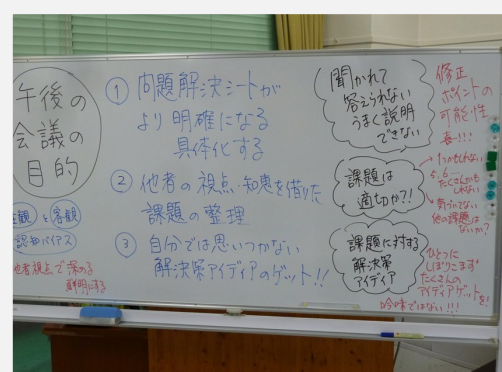 午後の
会議の
目的
主観 ⇔ 客観
認知バイアス
他者視点で深める
鮮明にする
① 問題解決シートが
より明確になる
具体化する
② 他者の視点・知恵を借りた
課題の整理
③ 自分では思いつかない
解決策アイディアのゲット!!
聞かれて
答えられない
うまく説明
できない
修正
ポイントの
可能性
大!!!
課題は
適切か?!
1つかもしれない
5、6…
たくさんかもしれない
気づいてない
他の課題は
ないか?
課題に対する
解決策
アイディア
ひとつに
しぼりこまず
たくさんの
アイディアゲットを!
吟味ではない!!!